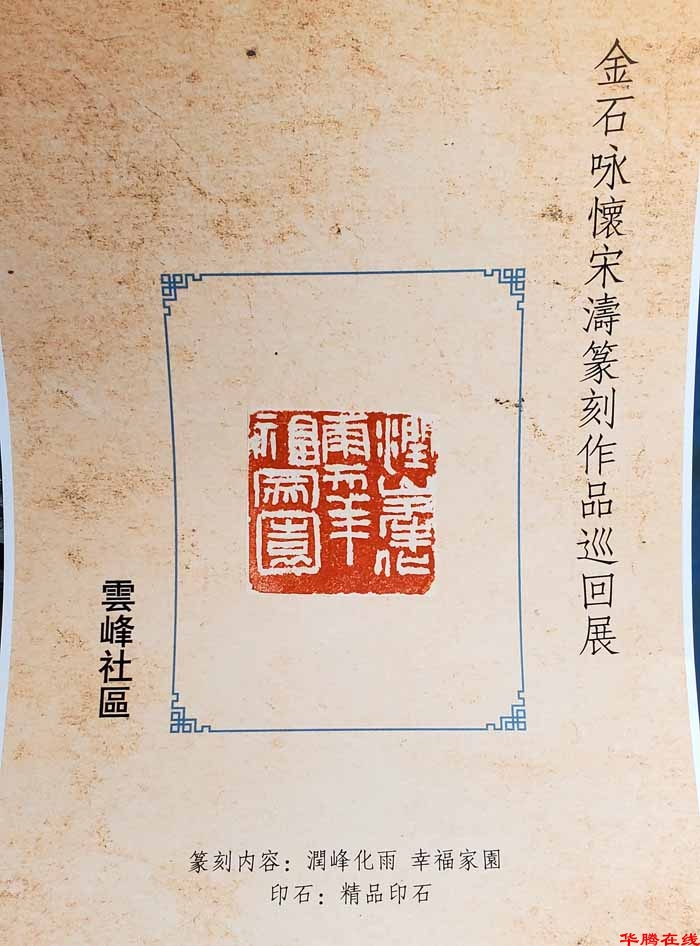 金石咏懷宋濤篆刻作品巡回展
潤峰化
雨幸
福家園
雲峰社區
篆刻内容：潤峰化雨 幸福家園
印石：精品印石
华腾在线